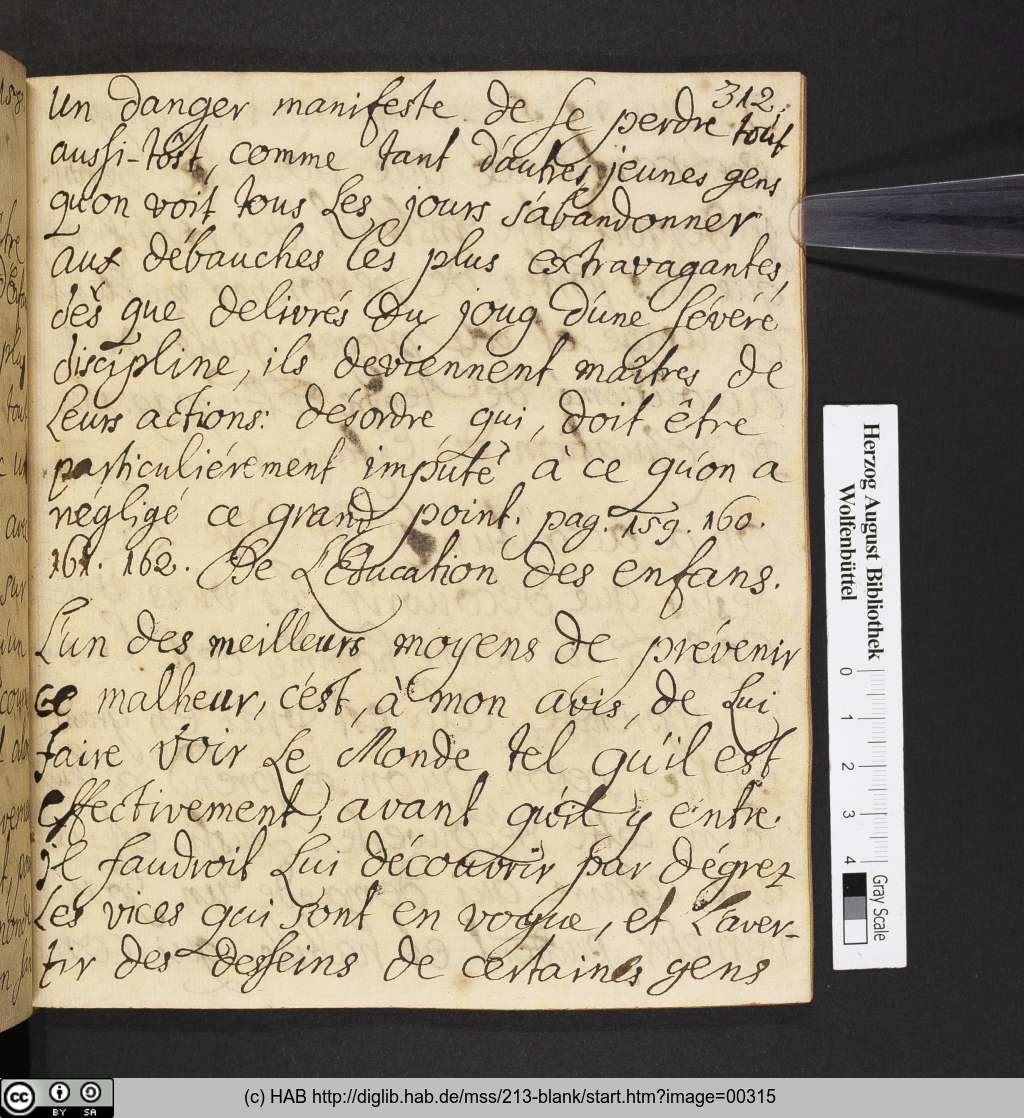 312.
un danger manifeste de se perdre tout
aussi-tôst, comme tant d'autres jeunes gens
qu'on voit tous Les jours s'abandonner
aux débauches les plus extravagantes,
dès que delivrés du joug d'une sévéré
discipline, ils deviennent maîtres de
Leurs actions: désordre qui, doit être
particuliérement imputé à ce qu'on a
négligé ce grand point. pag. 159. 160.
161. 162. De L'Education des enfans.
L'un des meilleurs moyens de prévenir
ce malheur, c'est, à mon avis, de Lui
faire voir Le Monde tel qu'il est
effectivement, avant qu'il y entre.
il faudroit Lui découvrir par dégrez
Les vices qui sont en vogue, et L'aver-
tir des desseins de certaines gens
Herzog August Bibliothek
Wolfenbüttel
0 1 2 3 4
Gray Scale
cc BY SA
(c) HAB http://diglib.hab.de/mss/213-blank/start.htm?image=00315